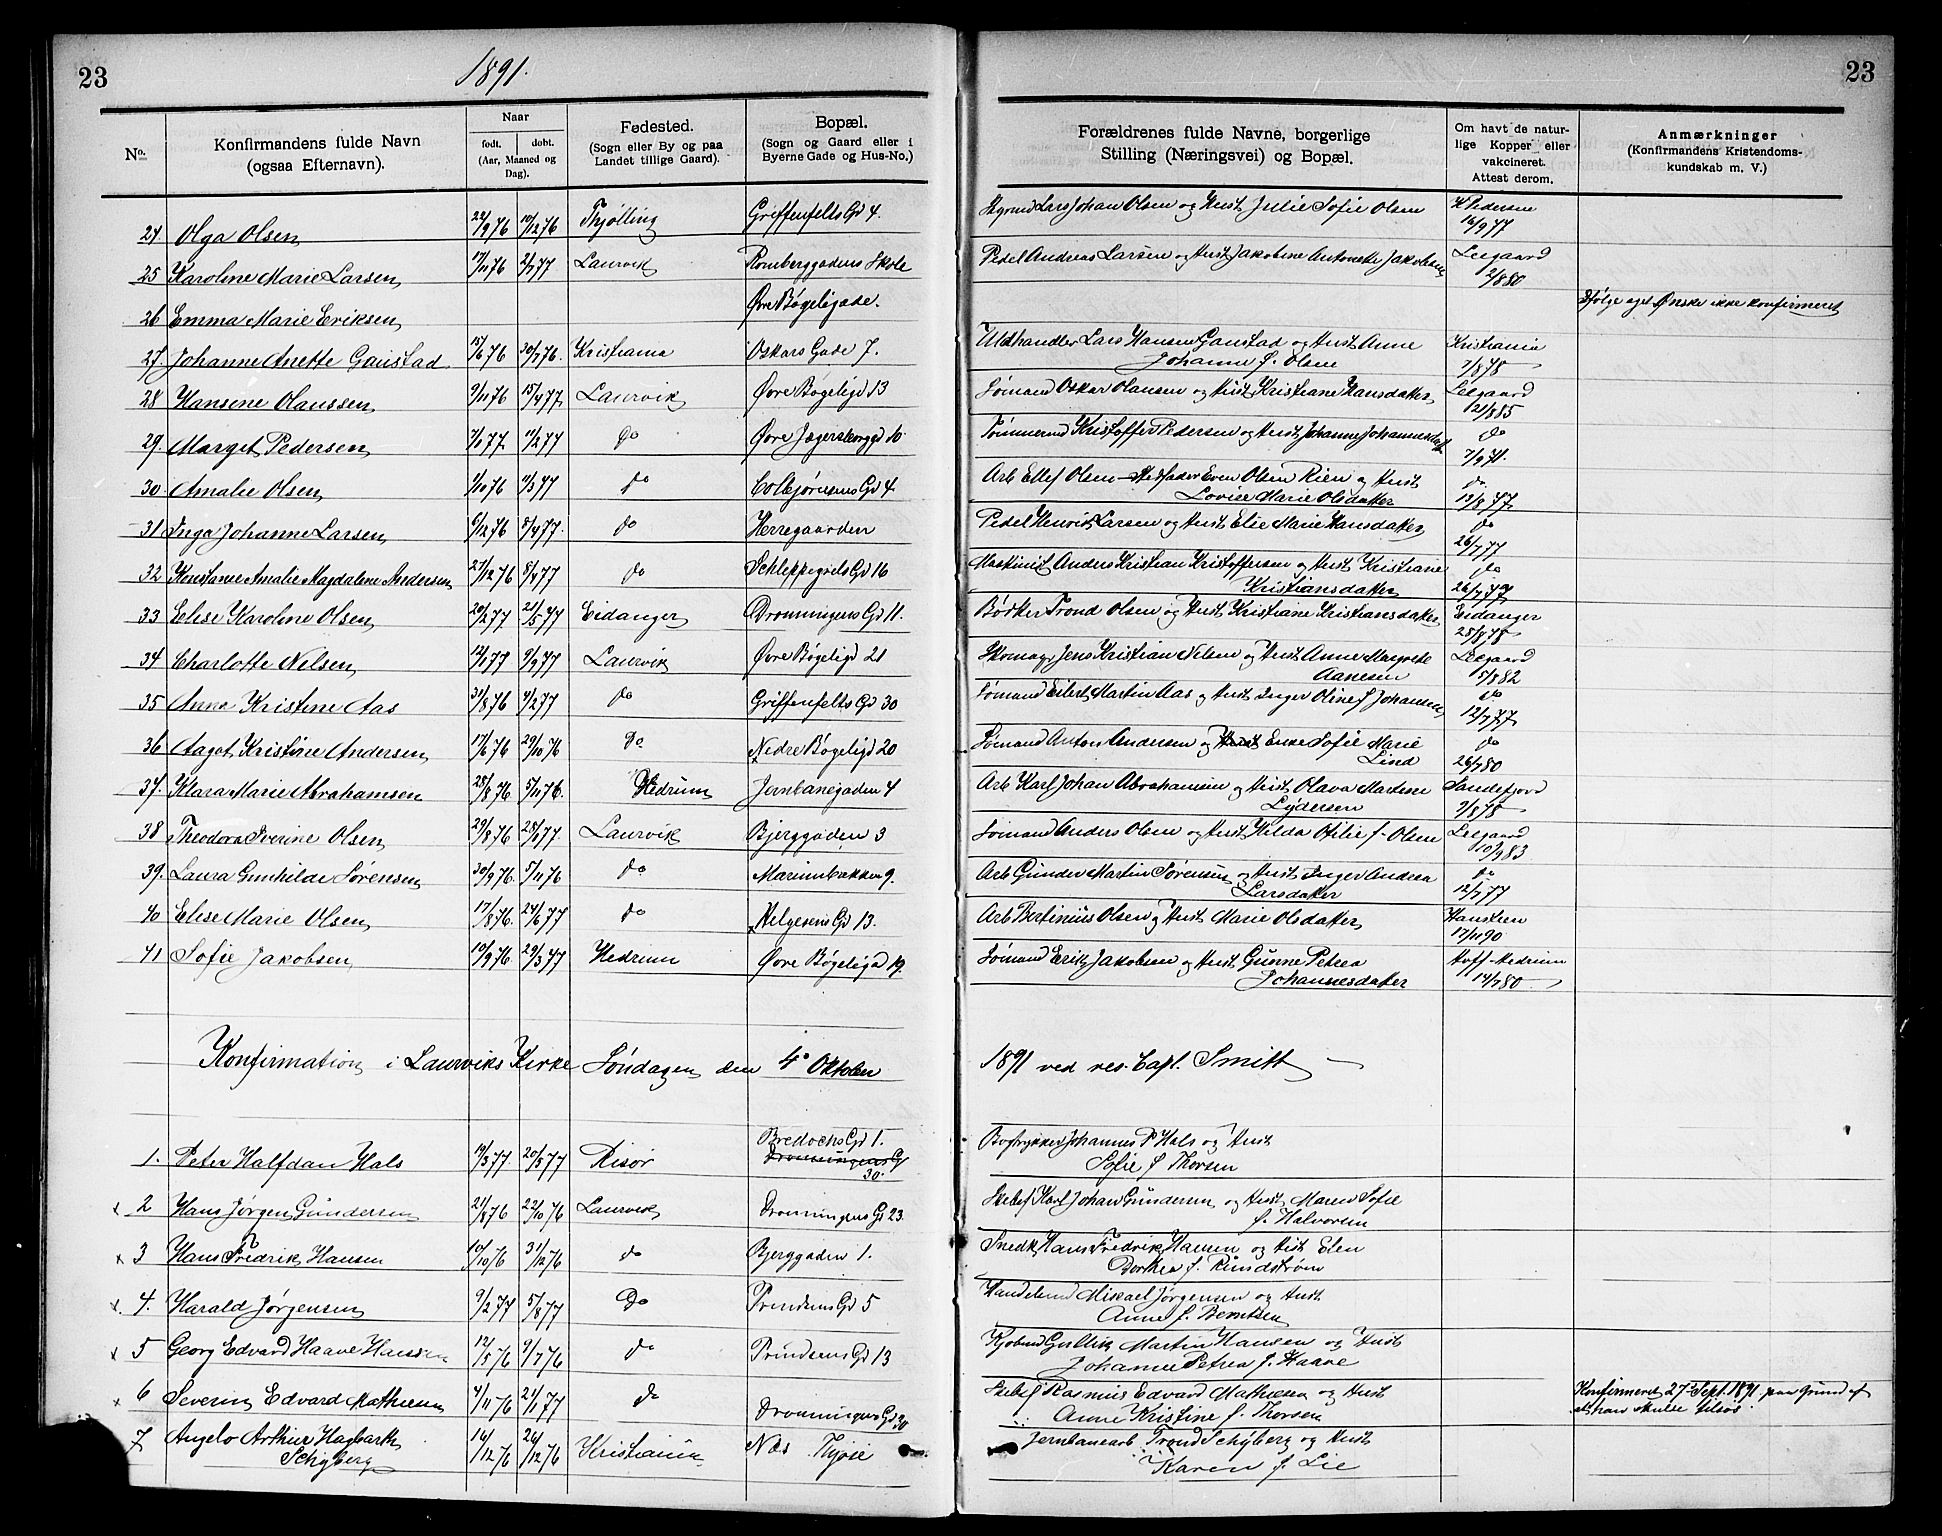 23
1891.
No.
Konfirmandens fulde Navn
(ogsaa Efternavn).
Naar
født. døbt.
(Aar, Maaned og
Dag).
Fødested.
(Sogn eller By og paa
Landet tillige Gaard).
Bopæl.
(Sogn og Gaard eller i
Byerne Gade og Hus-No.)
24 Olga Olsen 22/9 76 10/12 76 Thjølling Griffenfelts Gd 4.
25 Karoline Marie Larsen 17/11 76 2/7 77 Laurvik Rombergggadens Skole
26 Emma Marie Eriksen Øvre Bøgeligade.
27. Johanne Anette Gaustad 15/6 76 30/7 76. Kristiania Oskars Gade 7.
28 Hansine Olaussen 9/11 76 15/4 77 Laurvik Øvre Bøgeligd 13
29. Margit Pedersen 7/1 77. 11/2 77 do Øvre Jægersborggd 10.
30. Amalie Olsen 1/10 76 11/3 77 do Colbjørnsens Gd 4
31 Inga Johanne Larsen 6/12 76 8/4 77. do Herregaarden
32 Konstanse Amalie Magdalene Andersen 27/12 76 8/4 77 do Schleppegrels Gd 16
33 Elise Karoline Olsen 20/2 77 21/5 77 Eidanger Dronningens Gd 11.
34 Charlotte Nilsen 12/1 77 9/9 77 Laurvik Øvre Bøgeligd 21
35 Anna Kristine Aas 31/8 76 4/2 77 do Griffenfelts Gd 30
36 Aagot Kristine Andersen 17/6 76 29/10 76 do Nedre Bøgeligd 20
37. Klara Marie Abrahamsen 28/8 76 5/11 76. Hedrum Jernbanegaden 4
38 Theodora Iverine Olsen 29/8 76 25/6 77 Laurvik Bjerggaden 3
39. Laura Gunhilde Sørensen 30/9 76. 5/11 76 do Marumbakken 9.
40 Elise Marie Olsen 17/8 76. 24/6 77 do Helgesens Gd 13.
41 Sofie Jakobsen 10/9 76 29/3 77 Hedrum Øvre Bøgeligd 19.
Konfirmation i Laurviks Kirke Søndagen den 4de Oktober
1. Peter Halfdan Hals 19/3 77. 20/5 77 Risør Bredochs Gd 1.
Dronningens Gd
30.
x 2 Hans Jørgen Gundersen 21/8 76 22/10 76 Laurvik Dronningens Gd 23.
x 3 Hans Fredrik Hansen 10/10 76 31/12 76 do Bjerggaden 1.
x 4. Harald Jørgensen 9/2 77 5/8 77 do Prindsens Gd 5
x 5 Georg Edvard Haave Hansen 12/5 76 9/7 76 do Prindsens Gd 13
x 6 Severin Edvard Mathisen 4/11 76 21/1 77 do Dronningens Gd 30
7 Angelo Arthur Hagbarth
Schyberg 16/12 76 26/12 76 Kristiania Næs Thjøse
23
Forældrenes fulde Navne, borgerlige
Stilling (Næringsvei) og Bopæl.
Om havt de natur-
lige Kopper eller
vakcineret.
Attest derom.
Anmærkninger
(Konfirmandens Kristendoms-
kundskab m. V.)
Lars Johan Olsen og Hust Julie Sofie Olsen H Pedersen
16/9 77
Pedel Andreas Larsen og Hust Jakobine Antonette Jakobsen Leegaard
2/8 80
Ifølge eget Ønske ikke konfirmeret
Uldhandler Lars Hansen Gaustad og Hust Anne Kristiania
Johanne f. Olsen 7/8 78
Sømand Oskar Olausen og Hust Kristiane Hansdatter Leegaard
12/8 85
Tømmermd Kristoffer Pedersen og Hust Johanne do
7/9 71.
Arb Ellef Olsen Stedfader Even Olsen Rien og Hust do
Lovise Marie Olsdatter 13/8 77
Pedel Henrik Larsen og Hust Elie Marie Hansdatter do
26/7 77
Maskinist Anders Kristian Kristoffersen og Hust Kristiane do
Kristiansdatter 26/7 77
Bødker Trond Olsen og Hust Kristiane Kristiansdatter Eidanger
25/8 78
Skomag. Jens Kristian Nilsen og Hust Anne Margrete Leegaard
Aanesen 15/8 82
Sømand Eilert Martin Aas og Hust Inger Oline f Johansen do
12/7 77
Sømand Anton Andersen og Hust Enke Sofie Marie do
Lind 26/7 80
Arb Karl Johan Abrahamsen og Hust Olava Martine Sandefjord
Lydersen 9/8 78
Sømand Anders Olsen og Hust Hilda Otilie f. Olsen Leegaard
10/9 83
Arb Gunder Martin Sørensen og Hust Inger Andrea do
Larsdatter 12/7 77
Arb Bertinius Olsen og Hust Marie Olsdatter Hansteen
17/11 90
Sømand Erik Jakobsen og Hust Gunne Petrea Hoff-Hedrum
Johannesdatter 14/7 80
1891 ved res. Capl. Smitt
Bogtrykker Johannes P Hals og Hust
Sofie f Thorsen
Skibsf Karl Johan Gundersen og Hust Maren Sofie
f. Halvorsen
Snedk Hans Fredrik Hansen og Hust Elen
Dorthea f. Rundstrøm
Handelsmd Mikael Jørgensen og Hust
Anne f. Berntsen
Kjøbmd Gullik Martin Hansen og Hust
Johanne Petrea f. Haave
Skibsf Rasmus Edvard Mathisen og Hust
Anne Kristine f. Thorsen
Konfirmeret 27 Sept. 1891 paa Grund af
at han skulde tilsøs.
Jernbanearb Trond Schyberg og Hust
Karen f. Lie